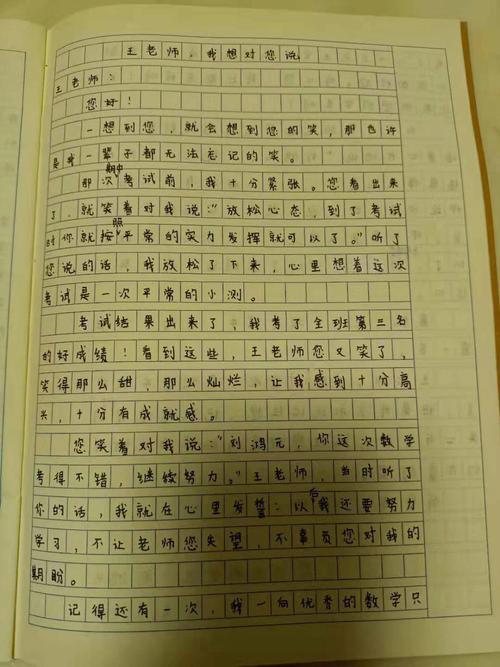 王老师，我想对您说
王老师：
您好！
一想到您，就会想到您的笑，那也许
是我一辈子都无法忘记的笑。
那次期中考试前，我十分紧张。您看出来
了，就笑着对我说：“放松心态，到了考试
时你就按照平常的实力发挥就可以了。”听了
您说的话，我放松了下来，心里想着这次
考试是一次平常的小测。
考试结果出来了，我考了全班第三名
的好成绩！看到这些，王老师您又笑了，
笑得那么甜，那么灿烂，让我感到十分高
兴，十分有成就感。
您笑着对我说：“刘鸿元，你这次数学
考得不错，继续努力。”王老师，当时听了
你的话，我就在心里发誓：以后我还要努力
学习，不让老师您失望，不辜负您对我的
期盼。
记得还有一次，我一向优秀的数学只